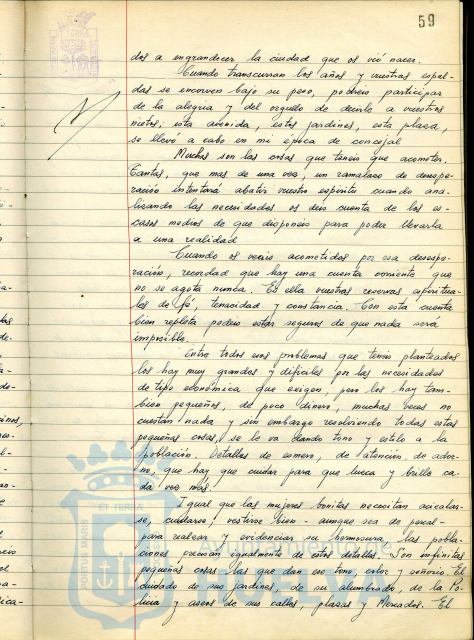 59
dos a engrandecer la ciudad que os vió nacer.
Cuando transcurran los años y vuestras espal-
das se encorven bajo su peso, podreis participar
de la alegria y del orgullo de decirle a vuestros
nietos: esta avenida, estos jardines, esta plaza,
se llevó a cabo en mi época de concejal
Muchas son las cosas que teneis que acometer.
Tantas, que mas de una vez, un ramalazo de desespe-
ración intentará abatir vuestro espiritu cuando ana-
lizando las necesidades os deis cuenta de los es-
casos medios de que disponeis para poder llevarla
a una realidad
Cuando os veais acometidos por esa desespe-
ración, recordad que hay una cuenta corriente que
no se agota nunca. Es ella vuestras reservas espiritua-
les de fé, tenacidad y constancia. Con esta cuenta
bien repleta podeis estar seguros de que nada será
imposible.
Entre todos esos problemas que teneis planteados
los hay muy grandes y dificiles por las necesidades
de tipo económica que exigen, pero los hay tam-
bien pequeños, de poco dinero, muchas veces no
cuestan nada y sin embargo resolviendo todas estas
pequeñas cosas, se le va dando tono y estilo a la
población. Detalles de esmero, de atención, de ador-
no, que hay que cuidar para que luzca y brille ca-
da vez más.
Igual que las mujeres bonitas necesitan acicalar-
se, cuidarse, vestirse bien - aunque sea de percal -
para realzar y evidenciar su hermosura, las pobla-
ciones precisan igualmente de estos detalles. Son infinitas
pequeñas cosas las que dan ese tono, color y señorio. El
cuidado de sus jardines, de su alumbrado, de la Po-
licia y aseos de sus calles, plazas y Mercados. El